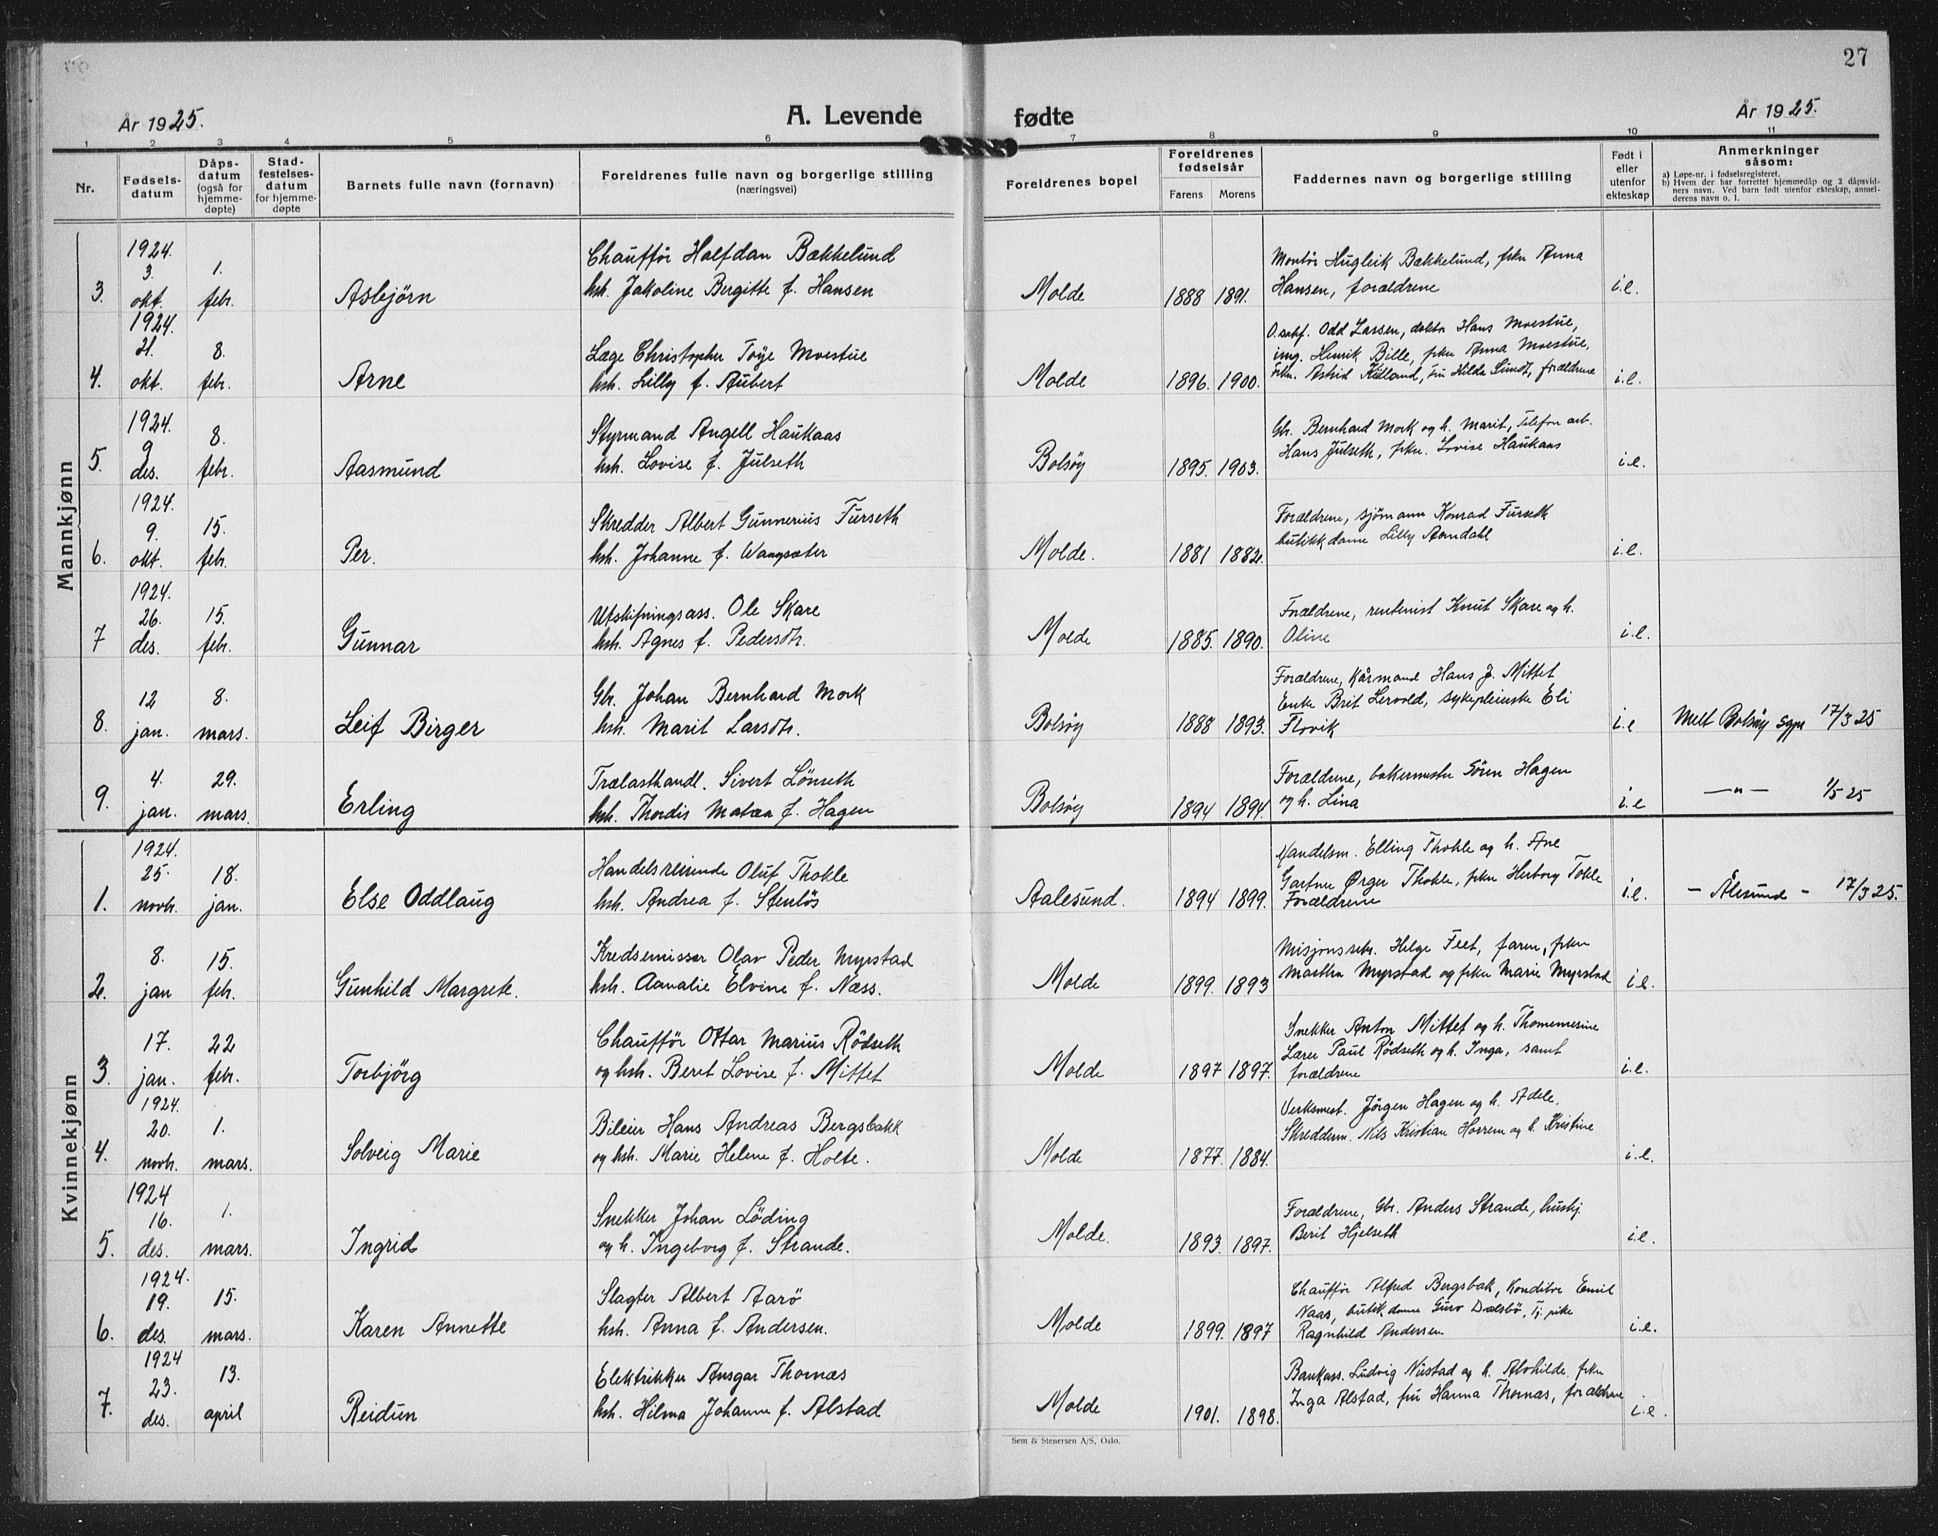 27
År 1925. A. Levende fødte År 1925.
1 2 3 4 5 6 7 8 9 10 11
Nr.
Fødsels-
datum
Dåps-
datum
(også for
hjemme-
døpte)
Stad-
festelses-
datum
for hjemme-
døpte
Barnets fulle navn (fornavn)
Foreldrenes fulle navn og borgerlige stilling
(næringsvei)
Foreldrenes bopel
Foreldrenes
fødselsår
Farens Morens
Faddernes navn og borgerlige stilling
Født i
eller
utenfor
ekteskap
Anmerkninger
såsom:
a) Løpe-nr. i fødselsregisteret.
b) Hvem der har forrettet hjemmedåp og 2 dåpsvid-
ners navn. Ved barn født utenfor ekteskap, anmel-
derens navn o. l.
Mannkjønn
3. 1924. 3. okt. 1. febr. Asbjørn
Chauffør Halfdan Bækkelund
hsh. Jakoline Bergitte f. Hansen
Molde 1888 1891.
Montør Hugleik Bækkelund, pkn Anna
Hansen, forældrene
i.e.
4. 1924. 21. okt. 8. febr. Arne
Læge Christopher Toye Moestue
hsh. Lilly f. Aubert
Molde 1896. 1900.
Odd Lassen, doktor Hans Moestue,
ing. Henrik Bille, pkn Anna Moestue,
frkn. Astrid Kielland, fru Hilda Sundt, forældrene
i.e.
5. 1924. 9 des. 8. febr. Aasmund
Styrmand Angell Haukaas
hsh. Lovise f. Julseth
Bolsøy 1895. 1903.
Gbr. Bernhard Mork og h. Marit, Telefon arb.
Hans Julseth, pkn. Lovise Haukaas
i.e.
6. 1924. 9. okt. 15. febr. Per.
Skredder Albert Gunnerius Furseth
hsh. Johanne f. Wangsæter
Molde. 1881 1882.
Forældrene, sjømann Konrad Furseth
butikkdame Lilly Aandahl
i.e.
7 1924. 26. des. 15. febr. Gunnar
Utskifningsass. Ole Skare
hsh. Agnes f. Pedersdtr.
Molde 1885. 1890.
Forældrene, rentenist Knut Skare og h.
Oline
i.e.
8. 12 jan. 8. mars. Leif Birger
Gbr. Johan Bernhard Mork
hsh. Marit Larsdtr.
Bolsøy 1888 1893.
Forældrene, Kårmand Hans J. Mittet
Enke Brit Lervold, sykepleierske Eli
Flovik
i.e
Melt Bolsøy sgpr 17/3 25
9. 4. jan. 29. mars. Erling
Trælasthandl. Sivert Lönseth
hsh. Thordis Matæa f. Hagen
Bolsøy 1894 1894.
Forældrene, bakermester Sören Hagen
og h. Lina
i.e
—"— 1/5 25
Kvinnekjønn
1. 1924. 25. novb. 18. jan. Else Oddlaug
Handelsreisende Oluf Thokle
hsh. Andrea f. Stenløs
Aalesund. 1894 1899.
Handelsm. Elling Thokle og h. Ane
Gartner Ørger Thokle, pkn Herborg Tokle
Forældrene
i.e.
- Ålesund - 17/3 25.
2. 8. jan 15. febr. Gunhild Margrete.
Kredsemissær Olav Peder Myrstad
hsh. Aanalie Elvine f. Næss.
Molde 1899. 1893
Misjonssekr. Helge Feet, faren, pkn
Martha Myrstad og pkn Marie Myrstad
i.e.
3. 17. jan. 22 febr. Torbjörg
Chauffør Ottar Marius Rödseth
og hsh. Beret Lovise f. Mittet
Molde 1897 1897.
Snekker Anton Mittet og h. Thomemesine
Lærer Paul Rödseth og h. Inga, samt
forældrene
i.e.
4. 1924. 20. novb. 1. mars. Solveig Marie
Bileier Hans Andreas Bergsbakk
og hsh. Marie Helene f. Holte.
Molde 1877. 1884.
Verksmest. Jørgen Hagen og h. Adele.
Skredderm. Nils Kristian Horrem og h. Kristine
i.e.
5. 1924 16. des. 1. mars. Ingrid
Snekker Johan Löding
og h. Ingeborg f. Strande.
Molde. 1893. 1897.
Forældrene, Gbr. Anders Strande, hushj.
Berit Hjelseth
i.e.
6. 1924. 19. des. 15. mars. Karen Annette
Slagter Albert Aarö
hsh. Anna f. Andersen.
Molde 1899. 1897
Chauffør Alfred Bergsbak, Konditor Emil
Naas, butikdame Guro Dalsbö, Tj. pike
Ragnhild Andersen
i.e.
7. 1924 23. des. 13. april Reidun
Elektrikker Ansgar Thomæs
hsh. Hilma Johanne f. Alstad
Molde 1901. 1898.
Bankass. Ludvig Nustad og h. Alvhilde. pkn
Inga Alstad, fru Hanna Thomæs, forældrene
i.e.
Sem & Stenersen A/S, Oslo.